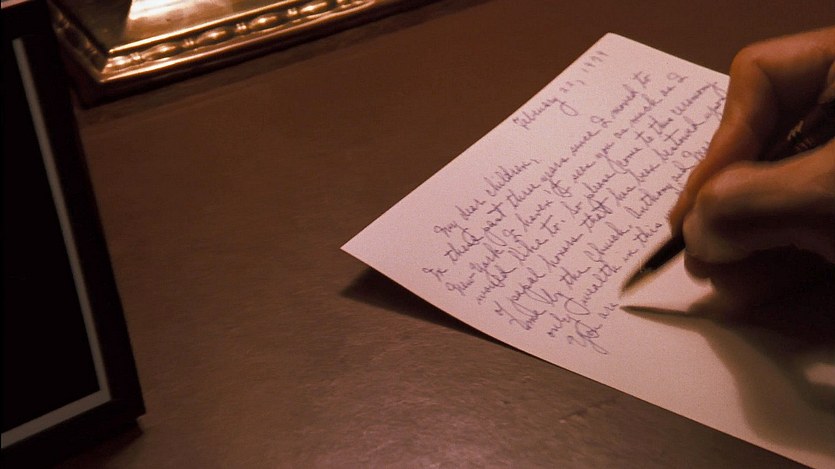 February 22, 1979
My dear children,
In these past three years since I moved to
New York I haven't seen you as much as I
would like to. So please come to this ceremony
of papal honors that has been bestowed upon
me by the church.
only wealth in this
You are